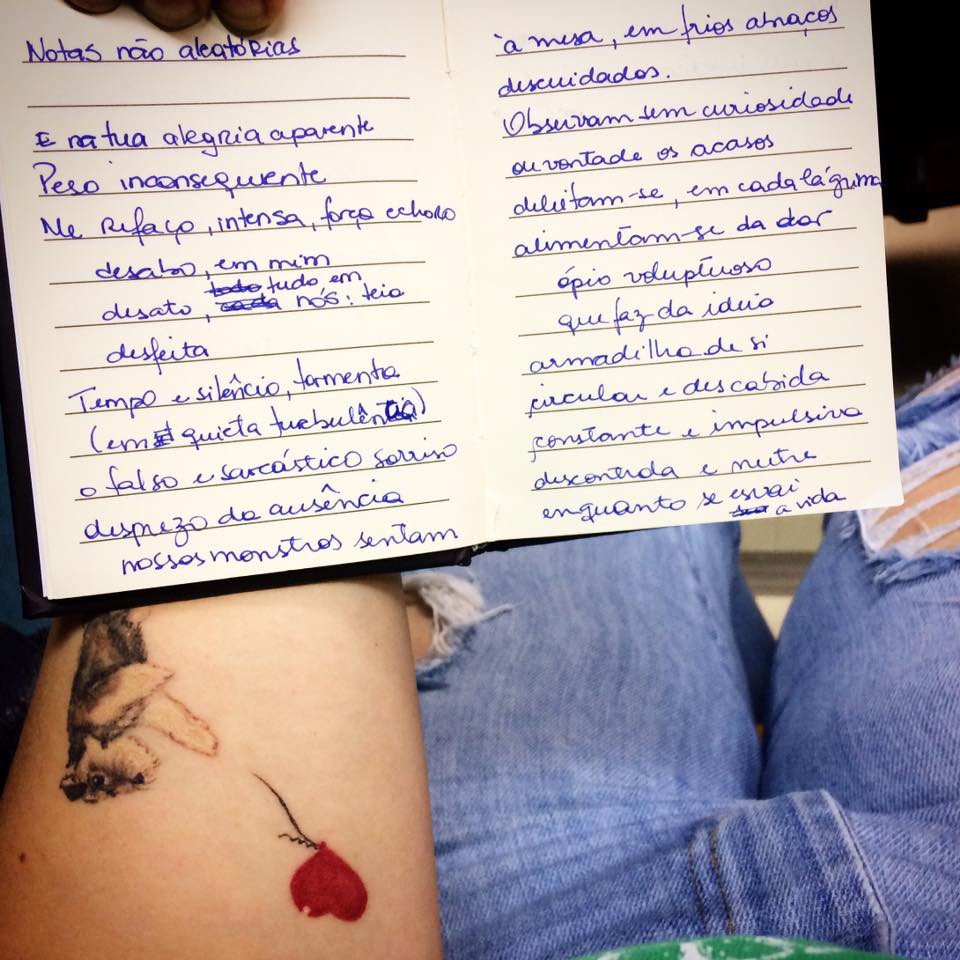 Notas não aleatórias
E na tua alegria aparente
Peso inconsequente
Me refaço, intensa, força e choro
desabo, em mim
desato, tudo em
nós: teia
desfeita
Tempo e silêncio, tormenta
(em quieta turbulência)
o falso e sarcástico sorriso
desprezo da ausência
nossos monstros sentam
à mesa, em frios abraços
descuidados.
Observam sem curiosidade
ou vontade os acasos
deleitam-se, em cada lágrima
alimentam-se da dor
ópio voluptuoso
que faz da ideia
armadilha de si
circular e descabida
constante e impulsiva
descontrola e nutre
enquanto se esvai
a vida